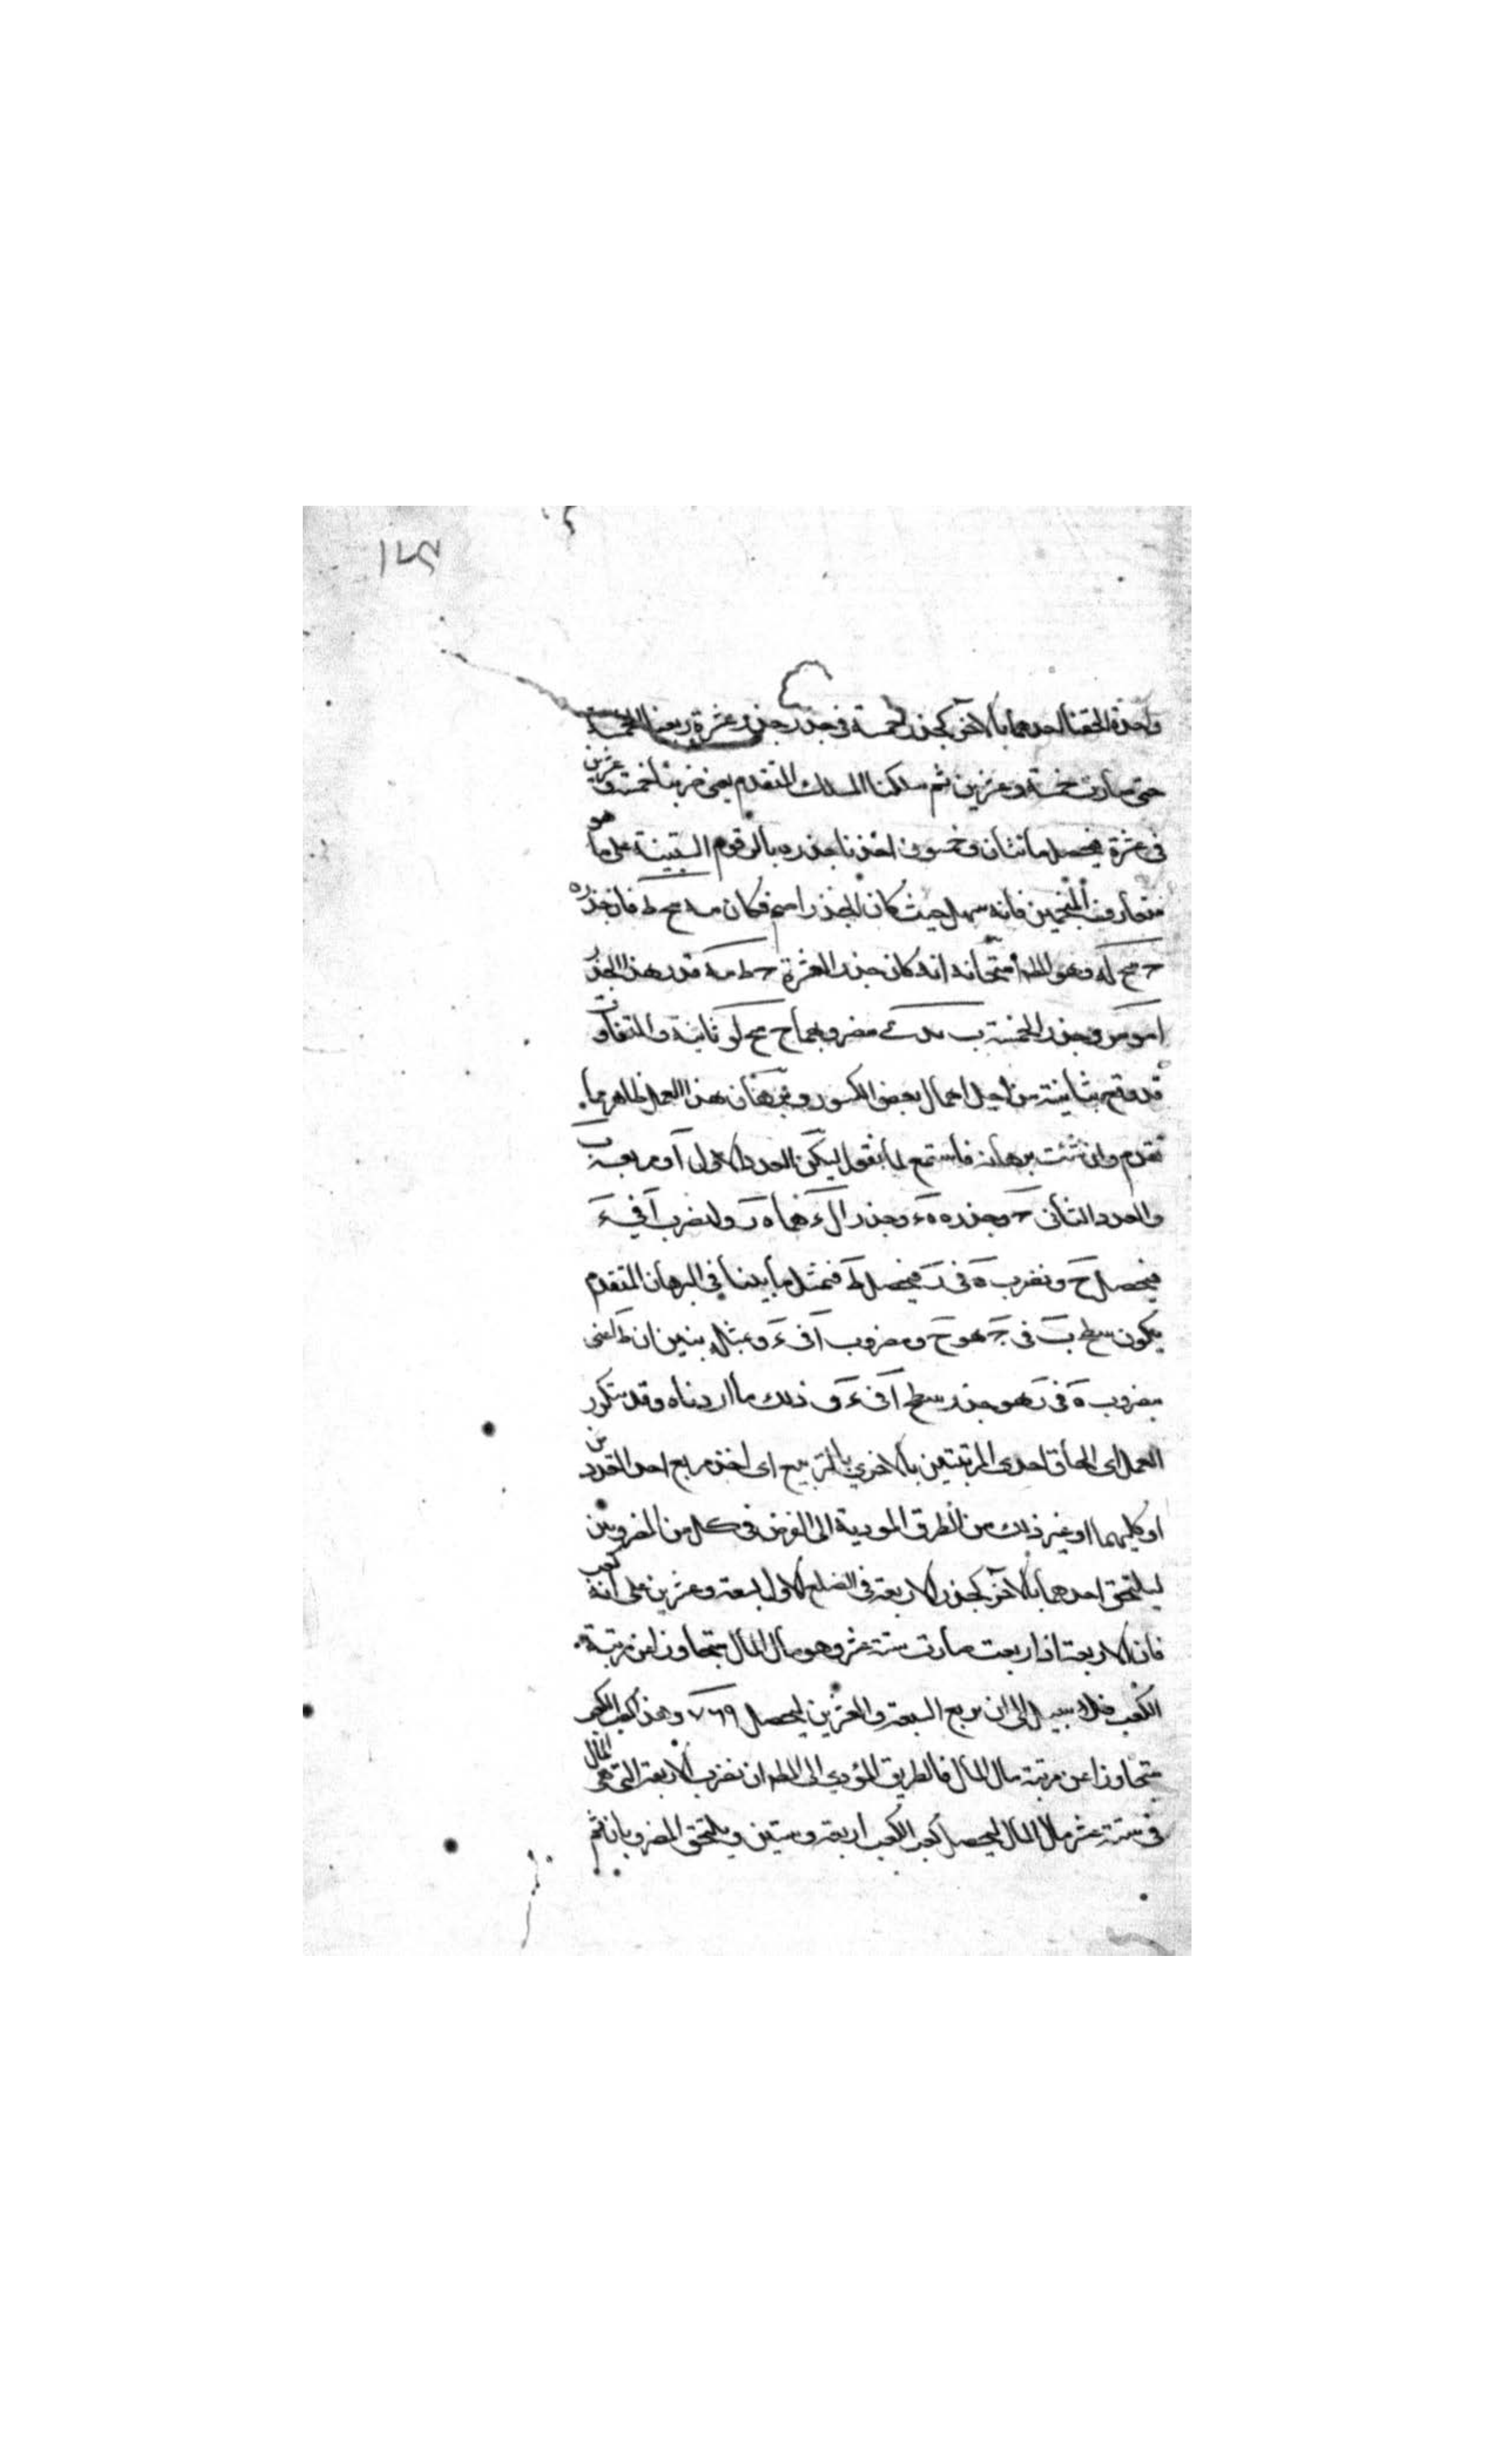 ١٧٥
واحدة الحقنا احدهما بالآخر كجذر خمسة فى جذر جذر عشرة ربعنا الخمسة
حتى صارت خمسة وعشرين ثم سلكنا المسلك المتقدم يعنى ضربنا خمسة وعشرين
فى عشرة فيحصل مائتان وخمسون اخذنا جذره بالرقوم الستينية على ما هو
متعارف المنجمين فانه سهل حيث كان الجذر اصم فكان يه مح مط فاذن جذره
ج نح وهو المط امتحانه انه كان جذر العشرة ج ط مد قدر هذا الجذر
ا مو وجذر الخمسة ب يد مضروبهما ج نح لو ثانية والتفاوت
قد وقع بثانية من اجل اهمال بعض الكسور وبرهان هذا العمل ظاهر مما
تقدم وان شئت برهانه فاستمع لما نقول ليكن العدد الاول آ ومربعه ب
والعدد الثانى ج وجذره ء وجذر آ ء هما ه ر ولنضرب آ فى ء
فيحصل ح ونضرب ه فى ر فيحصل ط فبمثل ما بينا فى البرهان المتقدم
يكون سطح ب فى ج هو ح ومضروب آ فى ء وبمثله يتبين ان ط اعنى
مضروب ه فى ر هو جذر سطح آ فى ء و ذلك ما اردناه وقد يتكرر
العمل اى الحاق احدى المرتبتين بالاخرى بالتربيع اى اخذ مربع احد العددين
او كليهما او غير ذلك من الطرق المودية الى الغرض فى كل من المضروبين
ليلتحق احدهما بالآخر كجذر الاربعة فى الضلع الاول لسبعة وعشرين على انه كعب
فان الاربعة اذا ربعت صارت ستة عشر وهو مال المال متجاوزا عن مرتبة
الكعب فلا سبيل الى ان نربع السبعة والعشرين ليحصل ٧٢٩ وهذا كعب الكعب
متجاوزا عن مرتبة مال المال فالطريق المؤدى الى المط ان نضرب الاربعة التى هى المال
فى ستة عشر مال المال ليحصل كعب الكعب اربعة وستين ويلتحق المضروبان ثم